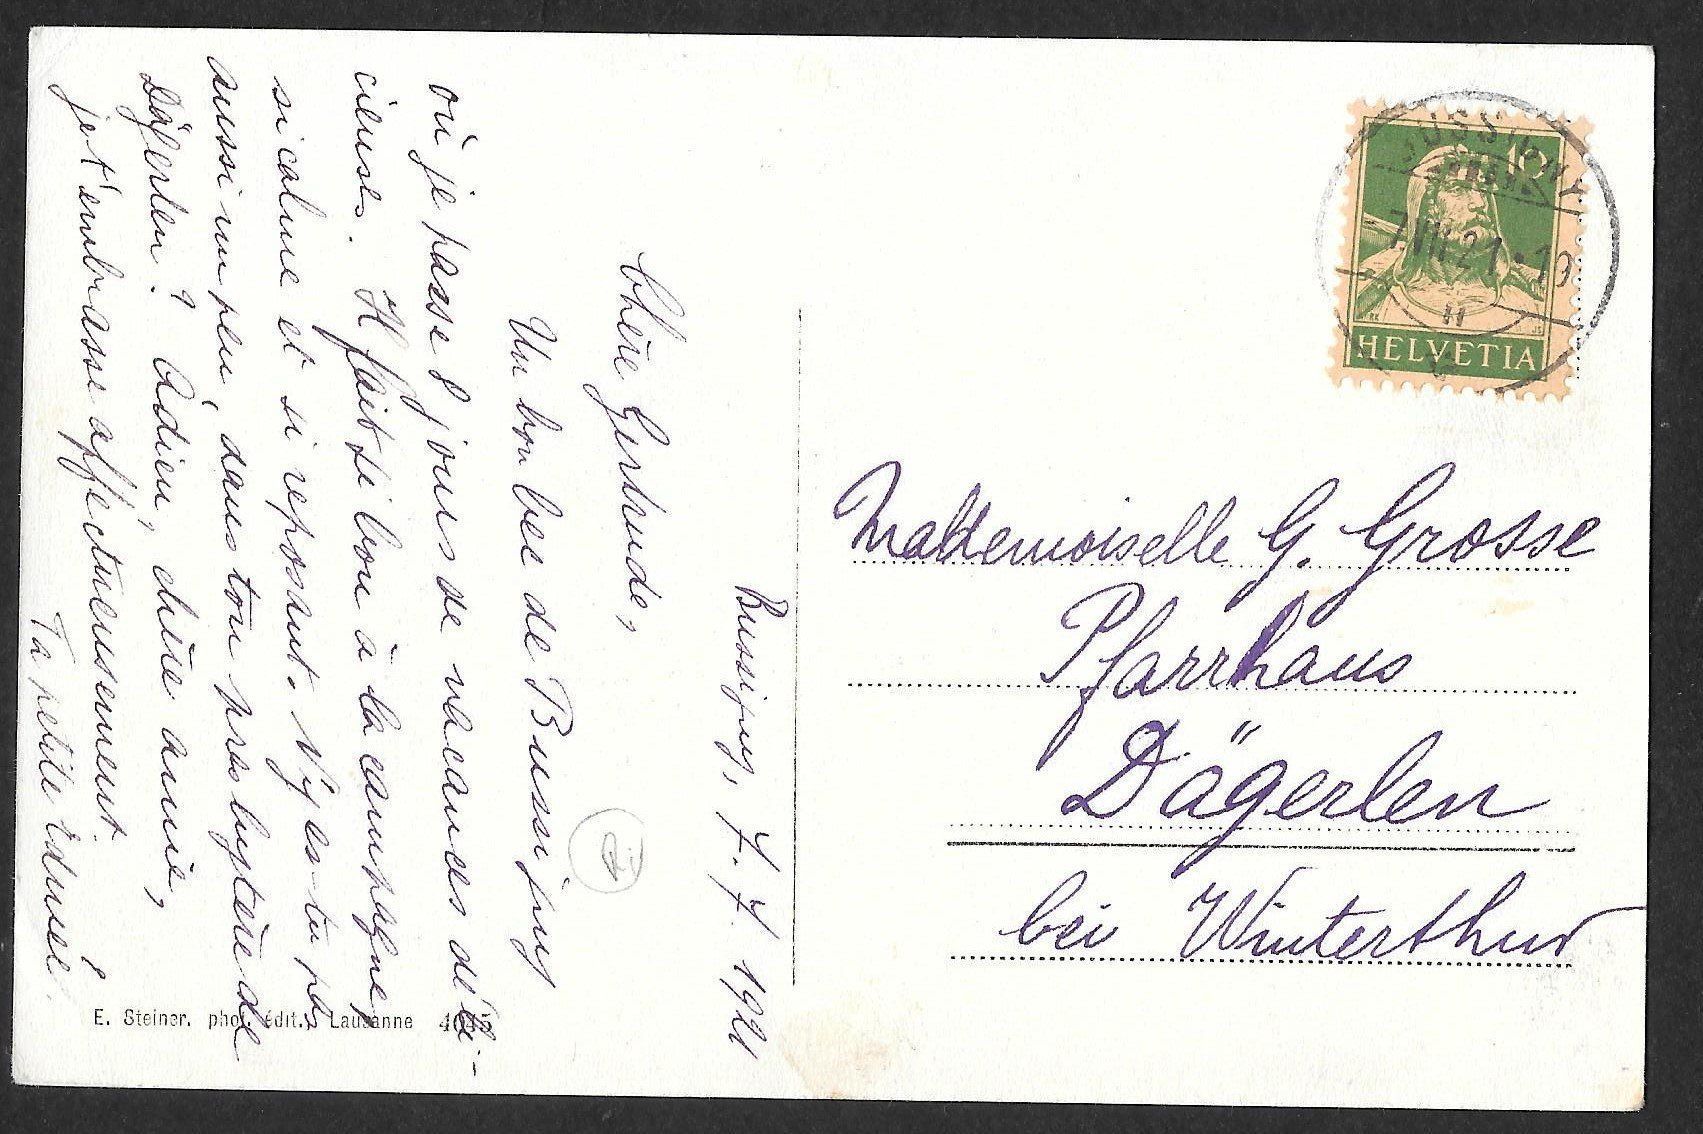 Bussigny, 7.7.1921
Chère Gertrude,
Un bon bec de Bussigny
où je passe 8 jours de vacances déli-
cieuses. Il fait si bon à la campagne,
si calme et si reposant. N'y es-tu pas
aussi un peu, dans ton presbytère de
Dägerlen? Adieu, chère amie,
je t'embrasse affectueusement.
Ta petite
E. Steiner. phot. édit., Lausanne
BUSSIGNY
7.VII.21.19
10
HELVETIA
Mademoiselle G. Grosse
Pfarrhaus
Dägerlen
bei Winterthur